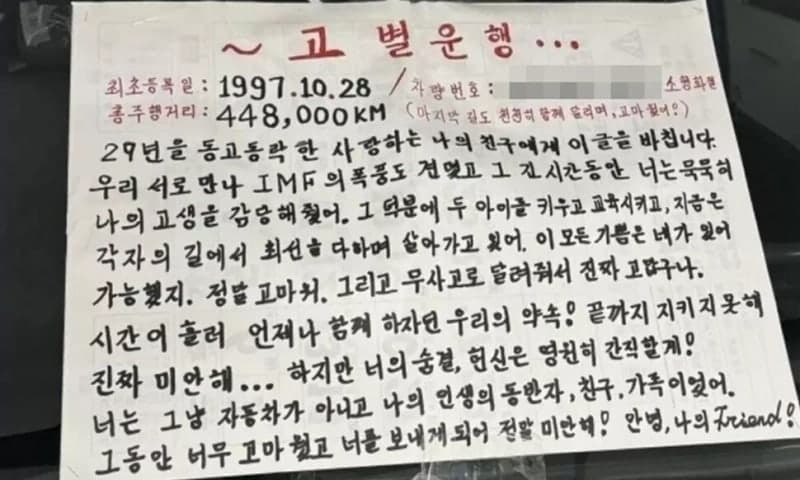 ~ 고별운행...
최초등록일: 1997.10.28 / 차량번호: 소명화원
총주행거리: 448,000KM (마지막 길도 천천히 함께 달리며, 고마웠어!)
29년을 동고동락 한 사랑하는 나의 친구에게 이 글을 바칩니다.
우리 서로 만나 IMF의 폭풍도 견뎠고 그 긴 시간동안 너는 묵묵히
나의 고생을 감당해 줬어. 그 덕분에 두 아이를 키우고 교육시키고, 지금은
각자의 길에서 최선을 다하며 살아가고 있어. 이 모든 기쁨은 네가 있어
가능했지. 정말 고마워. 그리고 무사고로 달려줘서 진짜 고맙구나.
시간이 흘러 언제나 함께 하자던 우리의 약속! 끝까지 지키지 못해
진짜 미안해... 하지만 너의 숨결, 헌신은 영원히 간직할게!
너는 그냥 자동차가 아니고 나의 인생의 동반자, 친구, 가족이었어.
그동안 너무 고마웠고 너를 보내게 되어 정말 미안해! 안녕, 나의 Friend!